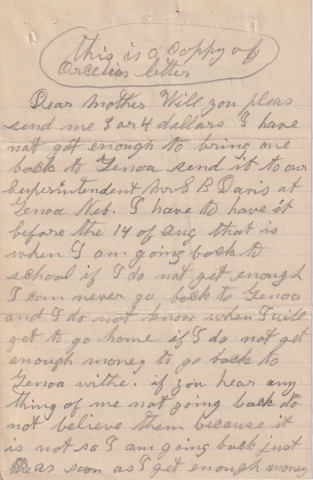 this is a coppy of
Arcelias letter
Dear Mother Will you pleas
send me 3 or 4 dollars I have
not got enough to bring me
back to Genoa send it to our
Superintendent Mr S B Davis at
Genoa Neb. I have to have it
before the 14 of Aug that is
when I am going back to
school if I do not get enough
I can never go back to Genoa
and I do not know when I will
get to go home if I do not get
enough money to go back to
Genoa withe. if you hear any
thing of me not going back do
not believe them because it
is not so I am going back just
as soon as I get enough money